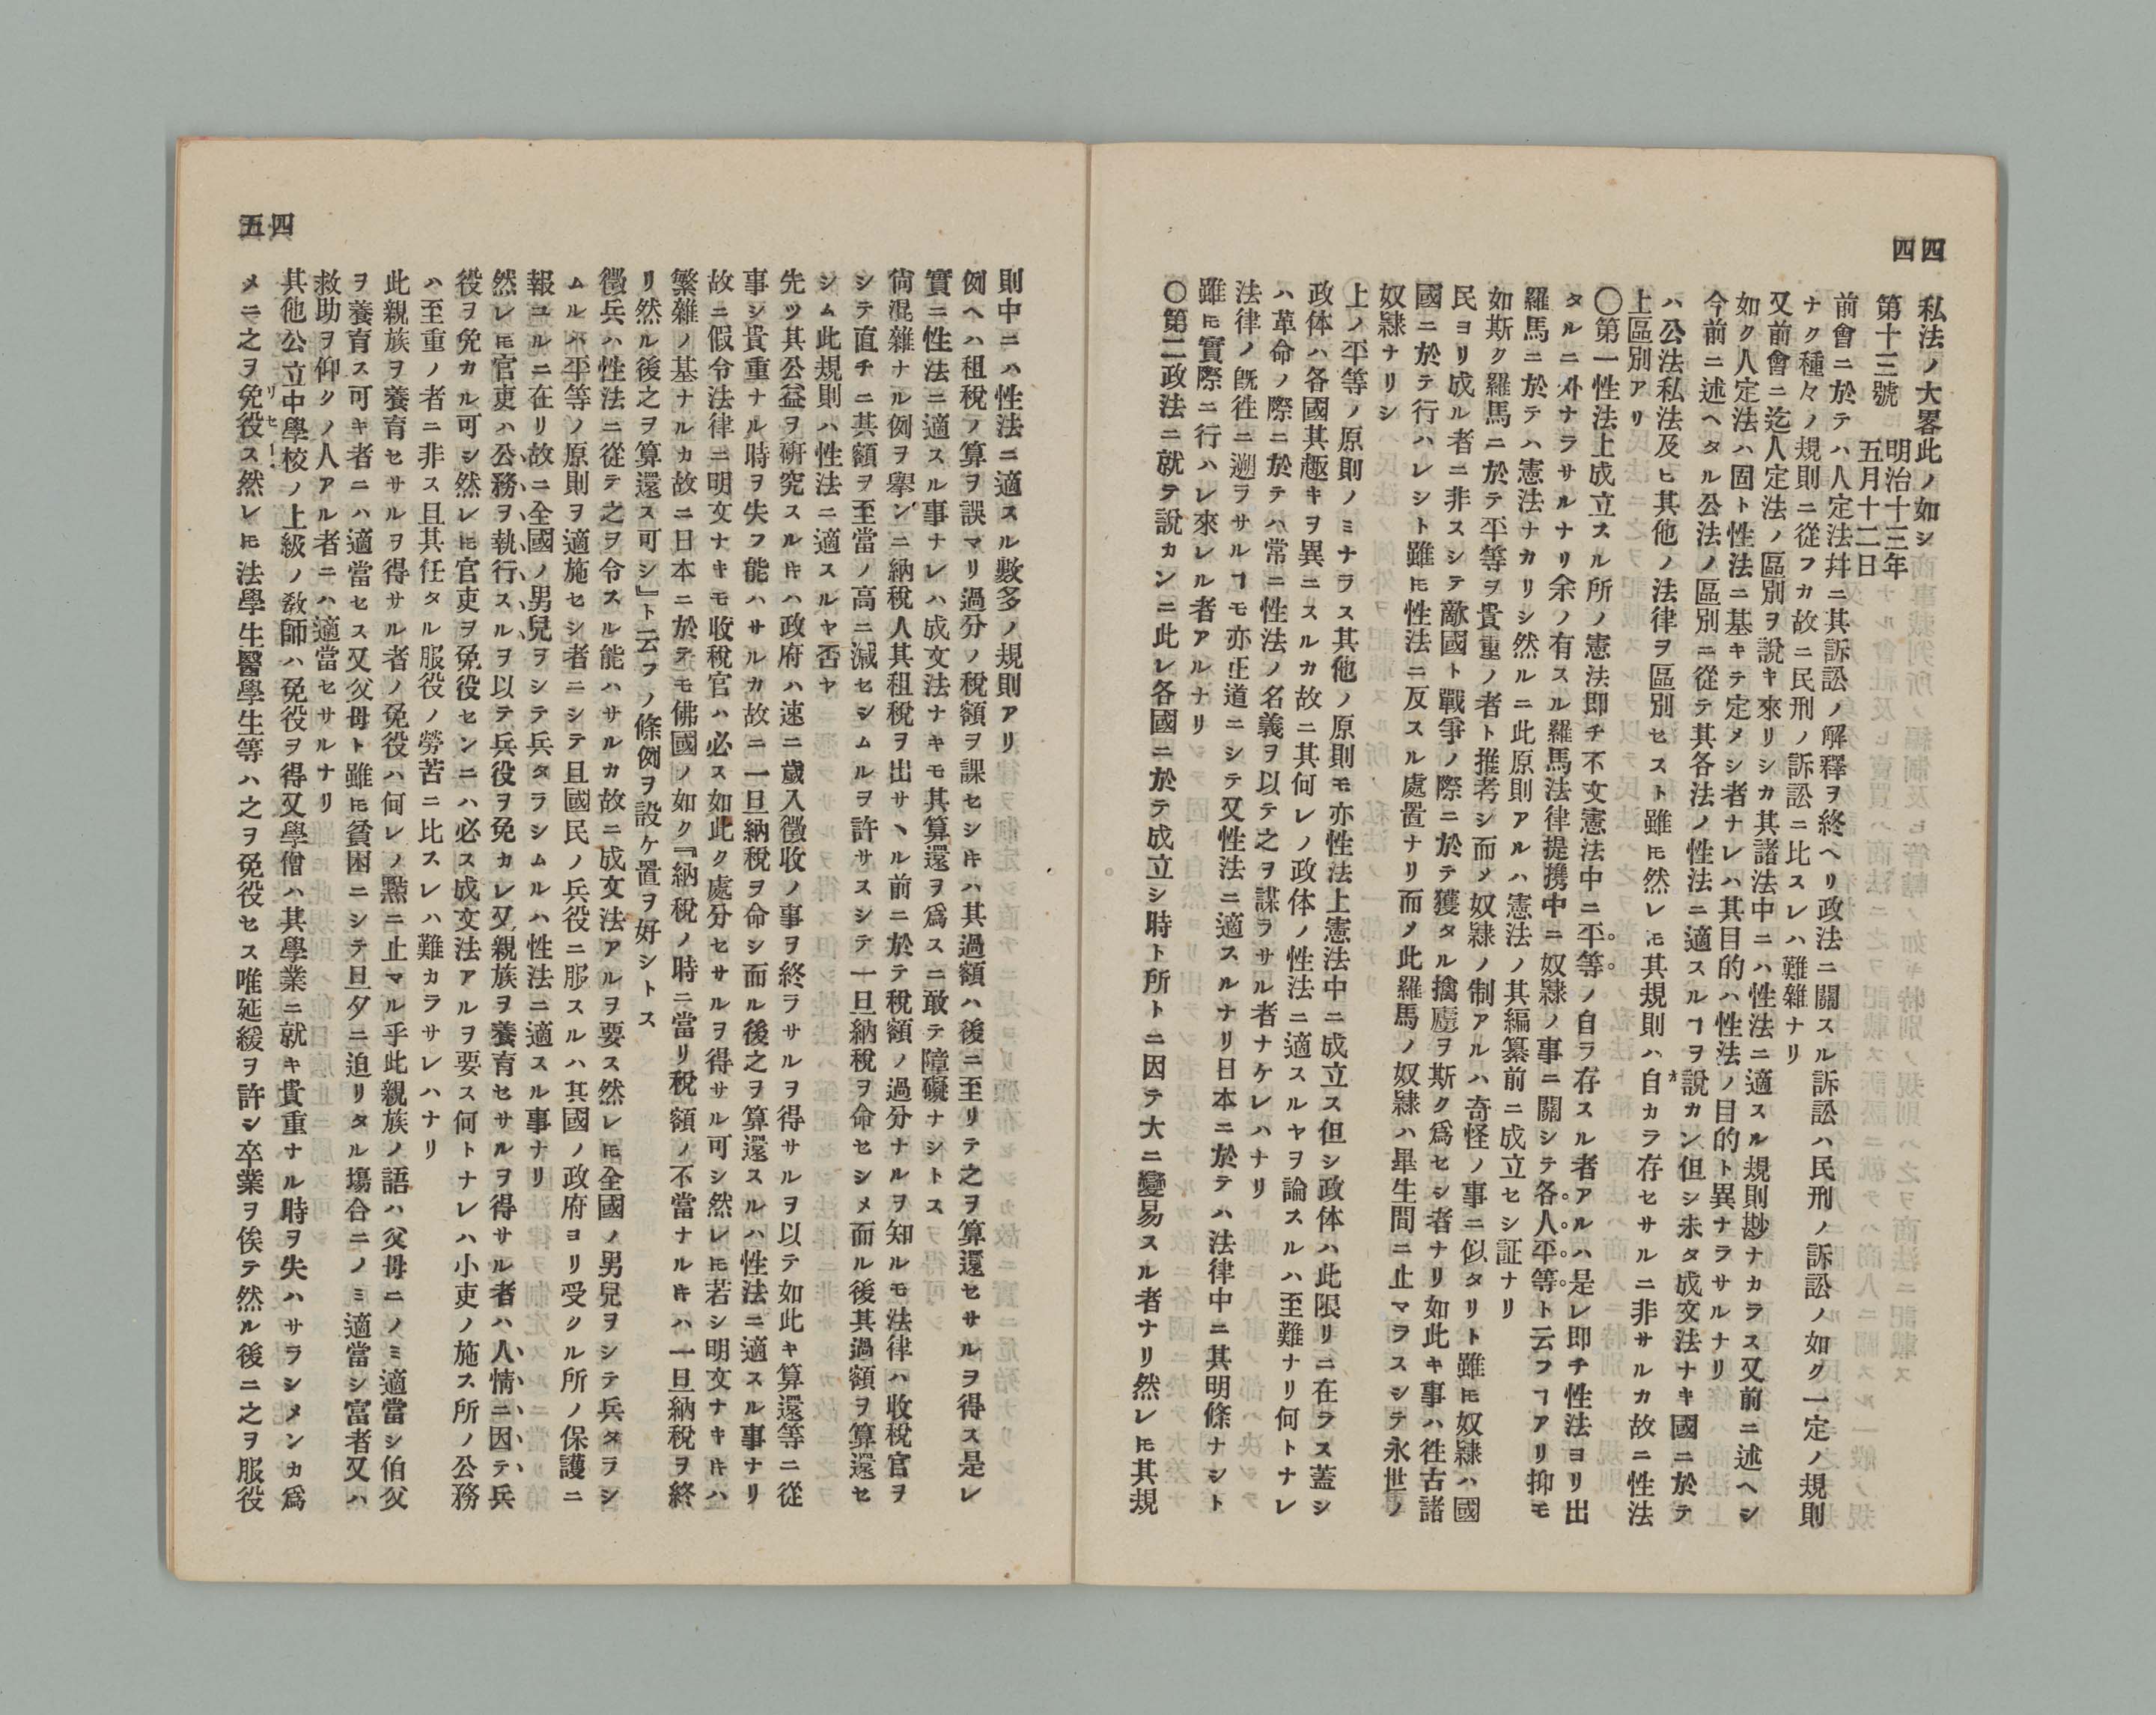 四四
私法ノ大畧此ノ如シ
第十三號 明治十三年
五月十二日
前會ニ於テハ人定法幷ニ其訴訟ノ解釋ヲ終ヘリ政法ニ關スル訴訟ハ民刑ノ訴訟ノ如ク一定ノ規則
ナク種々ノ規則ニ從フカ故ニ民刑ノ訴訟ニ比スレハ難雜ナリ
又前會ニ迄人定法ノ區別ヲ說キ來リシカ其諸法中ニハ性法ニ適スル規則尠ナカラス又前ニ述ヘシ
如ク人定法ハ固ト性法ニ基キテ定メシ者ナレハ其目的ハ性法ノ目的ト異ナラサルナリ
今前ニ述ヘタル公法ノ區別ニ從テ其各法ノ性法ニ適スルヿヲ說カン但シ未タ成文法ナキ國ニ於テ
ハ公法私法及ヒ其他ノ法律ヲ區別セスト雖𪜈然レモ其規則ハ自カラ存セサルニ非サルカ故ニ性法
上區別アリ
〇第一性法上成立スル所ノ憲法即チ不文憲法中ニ平等ノ自ヲ存スル者アルハ是レ即チ性法ヨリ出
タルニ外ナラサルナリ余ノ有スル羅馬法律提携中ニ奴隷ノ事ニ關シテ各人平等ト云フヿアリ抑モ
羅馬ニ於テハ憲法ナカリシ然ルニ此原則アルハ憲法ノ其編纂前ニ成立セシ証ナリ
如斯ク羅馬ニ於テ平等ヲ貴重ノ者ト推考シ而メ奴隷ノ制アルハ奇怪ノ事ニ似タリト雖モ奴隷ハ國
民ヨリ成ル者ニ非スシテ敵國ト戰爭ノ際ニ於テ獲タル擒虜ヲ斯ク爲セシ者ナリ如此キ事ハ徃古諸
國ニ於テ行ハレシト雖𪜈性法ニ反スル處置ナリ而メ此羅馬ノ奴隷ハ畢生間ニ止マラスシテ永世ノ
奴隷ナリシ
上ノ平等ノ原則ノミナラス其他ノ原則モ亦性法上憲法中ニ成立ス但シ政体ハ此限リニ在ラス蓋シ
政体ハ各國其趣キヲ異ニスルカ故ニ其何レノ政体ノ性法ニ適スルヤヲ論スルハ至難ナリ何トナレ
ハ革命ノ際ニ於テハ常ニ性法ノ名義ヲ以テ之ヲ謀ラサル者ナケレハナリ
法律ノ既徃ニ遡ラサルヿモ亦正道ニシテ又性法ニ適スルナリ日本ニ於テハ法律中ニ其明條ナシト
雖𪜈實際ニ行ハレ來レル者アルナリ
〇第二政法ニ就テ說カンニ此レ各國ニ於テ成立シ時ト所トニ因テ大ニ變易スル者ナリ然レ𪜈其規
四五
則中ニハ性法ニ適スル數多ノ規則アリ
例ヘハ租稅ノ算ヲ誤マリ過分ノ稅額ヲ課セシ𪜈ハ其過額ハ後ニ至リテ之ヲ算還セサルヲ得ス是レ
實ニ性法ニ適スル事ナレハ成文法ナキモ其算還ヲ爲スニ敢テ障礙ナシトス
倘混雜ナル例ヲ擧ンニ納稅人其租稅ヲ出サヽル前ニ於テ稅額ノ過分ナルヲ知ルモ法律ハ收稅官ヲ
シテ直チニ其額ヲ至當ノ高ニ減セシムルヲ許サスシテ一旦納稅ヲ命セシメ而ル後其過額ヲ算還セ
シム此規則ハ性法ニ適スルヤ否ヤ
先ツ其公益ヲ硏究スル𪜈ハ政府ハ速ニ歲入徵收ノ事ヲ終ラサルヲ得サルヲ以テ如此キ算還等ニ從
事シ貴重ナル時ヲ失フ能ハサルカ故ニ一旦納稅ヲ命シ而ル後之ヲ算還スルハ性法ニ適スル事ナリ
故ニ假令法律ニ明文ナキモ收稅官ハ必ス如此ク處分セサルヲ得サル可シ然レ𪜈若シ明文ナキ𪜈ハ
繁雜ノ基ナルカ故ニ日本ニ於テモ佛國ノ如ク『納稅ノ時ニ當リ稅額ノ不當ナル𪜈ハ一旦納稅ヲ終
リ然ル後之ヲ算還ス可シ』ト云フノ條例ヲ設ケ置ヲ好シトス
徵兵ハ性法ニ從テ之ヲ令スル能ハサルカ故ニ成文法アルヲ要ス然レ𪜈全國ノ男兒ヲシテ兵タラシ
ムルハ平等ノ原則ヲ適施セシ者ニシテ且國民ノ兵役ニ服スルハ其國ノ政府ヨリ受クル所ノ保護ニ
報ユルニ在リ故ニ全國ノ男兒ヲシテ兵タラシムルハ性法ニ適スル事ナリ
然レ𪜈官吏ハ公務ヲ執行スルヲ以テ兵役ヲ免カレ又親族ヲ養育セサルヲ得サル者ハ人情ニ因テ兵
役ヲ免カル可シ然レ𪜈官吏ヲ免役センニハ必ス成文法アルヲ要ス何トナレハ小吏ノ施ス所ノ公務
ハ至重ノ者ニ非ス且其任タル服役ノ勞苦ニ比スレハ難カラサレハナリ
此親族ヲ養育セサルヲ得サル者ノ免役ハ何レノ點ニ止マル乎此親族ノ語ハ父母ニノミ適當シ伯父
ヲ養育ス可キ者ニハ適當セス又父母ト雖𪜈貧困ニシテ旦夕ニ迫リタル塲合ニノミ適當シ富者又ハ
救助ヲ仰クノ人アル者ニハ適當セサルナリ
其他公立中學校ノ上級ノ敎師ハ免役ヲ得又學僧ハ其學業ニ就キ貴重ナル時ヲ失ハサラシメンカ爲
メニ之ヲ免役ス然レ𪜈法學生醫學生等ハ之ヲ免役セス唯延緩ヲ許シ卒業ヲ俟テ然ル後ニ之ヲ服役